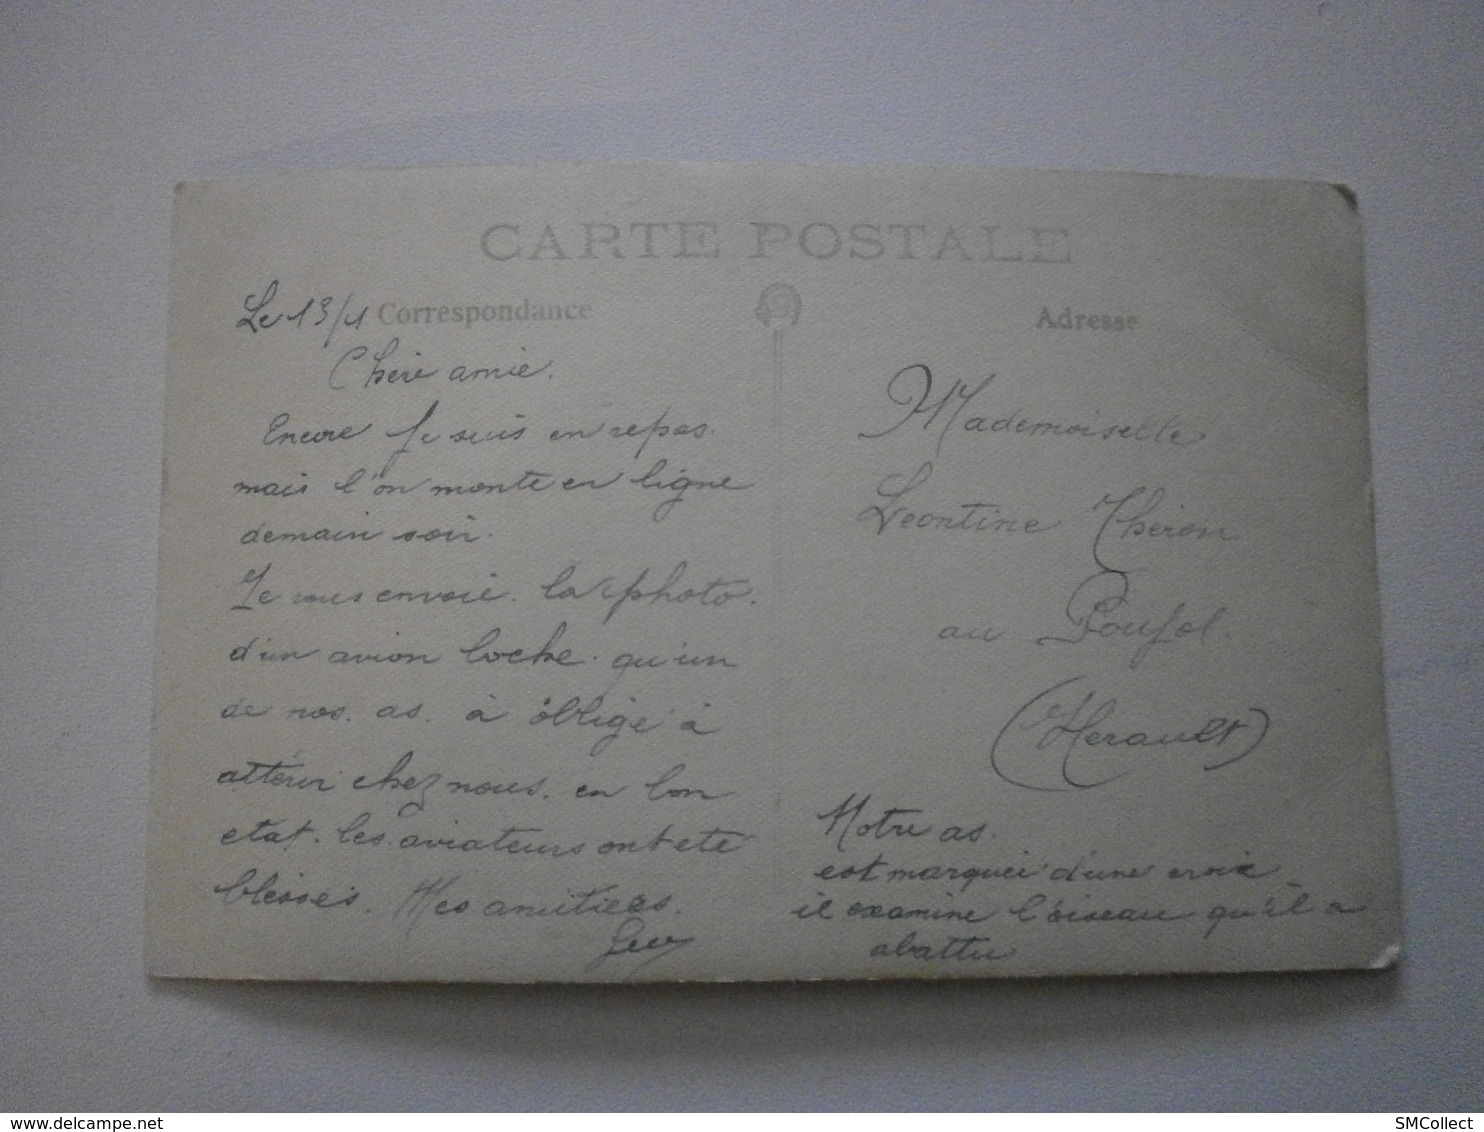 CARTE POSTALE
Le 13/1 Correspondance
Chère amie.
Encore Je suis en repos.
mais l'on monte en ligne
demain soir.
Je vous envoie. la photo.
d'un avion boche. qu'un
de nos. as. à obligé à
attérir chez nous. en bon
etat. les aviateurs ont eté
blessés. Mes amitiées.
Adresse
Mademoiselle
Leontine Théron
au Poujol.
(Herault)
Notre as.
est marquée d'une croix
il examine l'oiseau qu'il a
abattu
delcampe.net
SMCollect